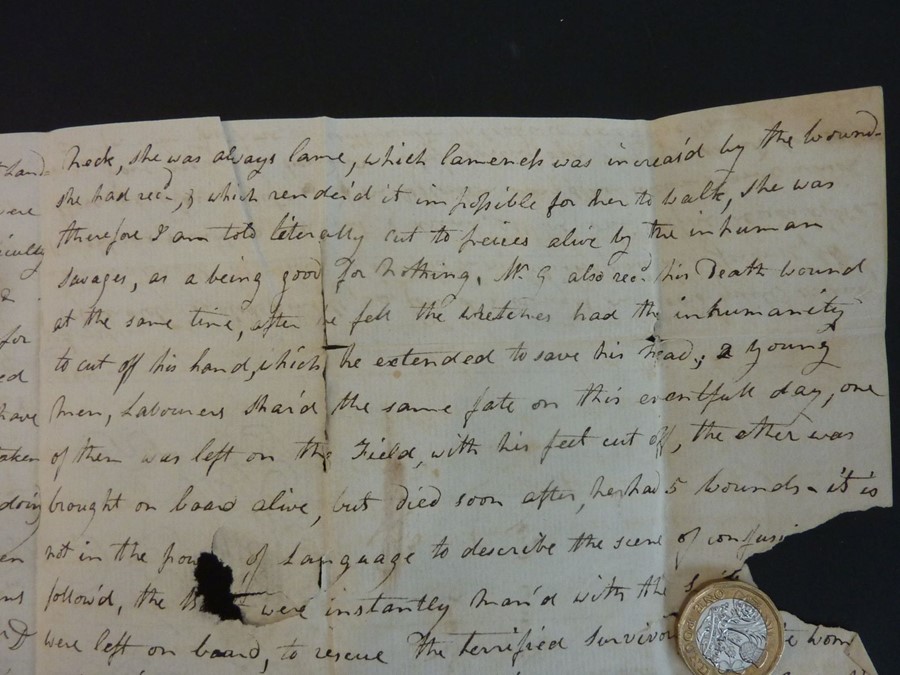 hand neck, she was always lame, which lameness was increas'd by the wound-
were she had recd, & which render'd it impossible for her to walk, she was
therefore I am told literally cut to peices alive by the inhuman
savages, as a being good for nothing. Mr G also recd his Death wound
at the same time, after he fell the wretches had the inhumanity
for to cut off his hand, which he extended to save his head; 2 young
ed men, Labourers shar'd the same fate on this eventfull day, one
have of them was left on the Field, with his feet cut off, the other was
taken brought on board alive, but died soon after, he had 5 wounds - it is
doing not in the pow of Language to describe the scene of confusi
en follow'd, the were instantly man'd with the
were left on board, to rescue the terrified survivo